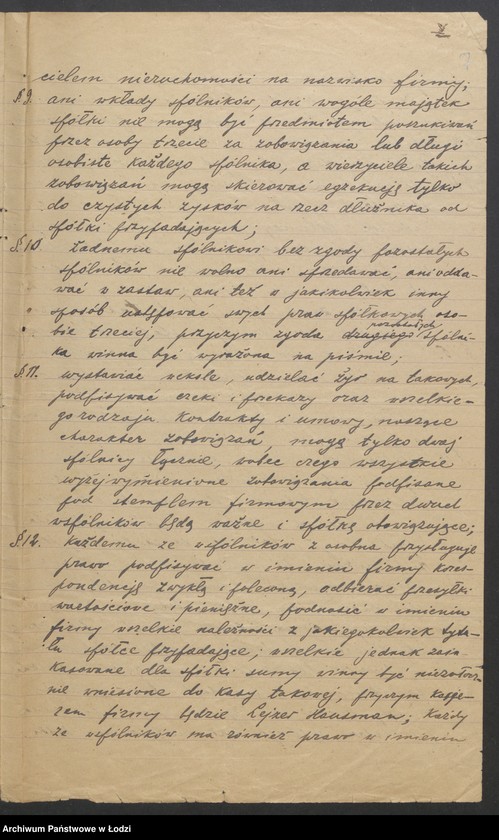 cielem nieruchomości na nazwisko firmy;
§ 9. ani wkłady spólników, ani wogóle majątek
spółki nie mogą być przedmiotem poszukiwań
przez osoby trzecie za zobowiązania lub długi
osobiste każdego spólnika, a wierzyciele takich
zobowiązań mogą skierować egzekucję tylko
do czystych zysków na rzecz dłużnika od
spółki przypadających;
§ 10 Żadnemu spólnikowi bez zgody pozostałych
spólników nie wolno ani sprzedawać, ani odda-
wać w zastaw, ani też w jakikolwiek inny
sposób ustępować swych praw spółkowych oso-
bie trzeciej, przyczem zgoda drugiego pozostałych spólni-
ka winna być wyrażona na piśmie;
§ 11. wystawiać weksle, udzielać żyr na takowych,
podpisywać czeki i przekazy oraz wszelkie-
go rodzaju kontrakty i umowy, noszące
charakter zobowiązań, mogą tylko dwaj
spólnicy łącznie, wobec czego wszystkie
wyżej wymienione zobowiązania podpisane
pod stemplem firmowym przez dwuch
wspólników będą ważne i spółkę obowiązujące;
§ 12. Każdemu ze wspólników z osobna przysługuje
prawo podpisywać w imieniu firmy kores-
pondencję zwykłą i poleconą, odbierać przesyłki
wartościowe i pieniężne, podnosić w imieniu
firmy wszelkie należności z jakiegokolwiek tytu-
łu spółce przypadające; wszelkie jednak zain-
kasowane dla spółki sumy winny być niezwłocz-
nie wniesione do kasy takowej, przyczem kasje-
rem firmy będzie Lejzer Hausman; Każdy
ze wspólników ma również prawo w imieniu
Archiwum Państwowe w Łodzi